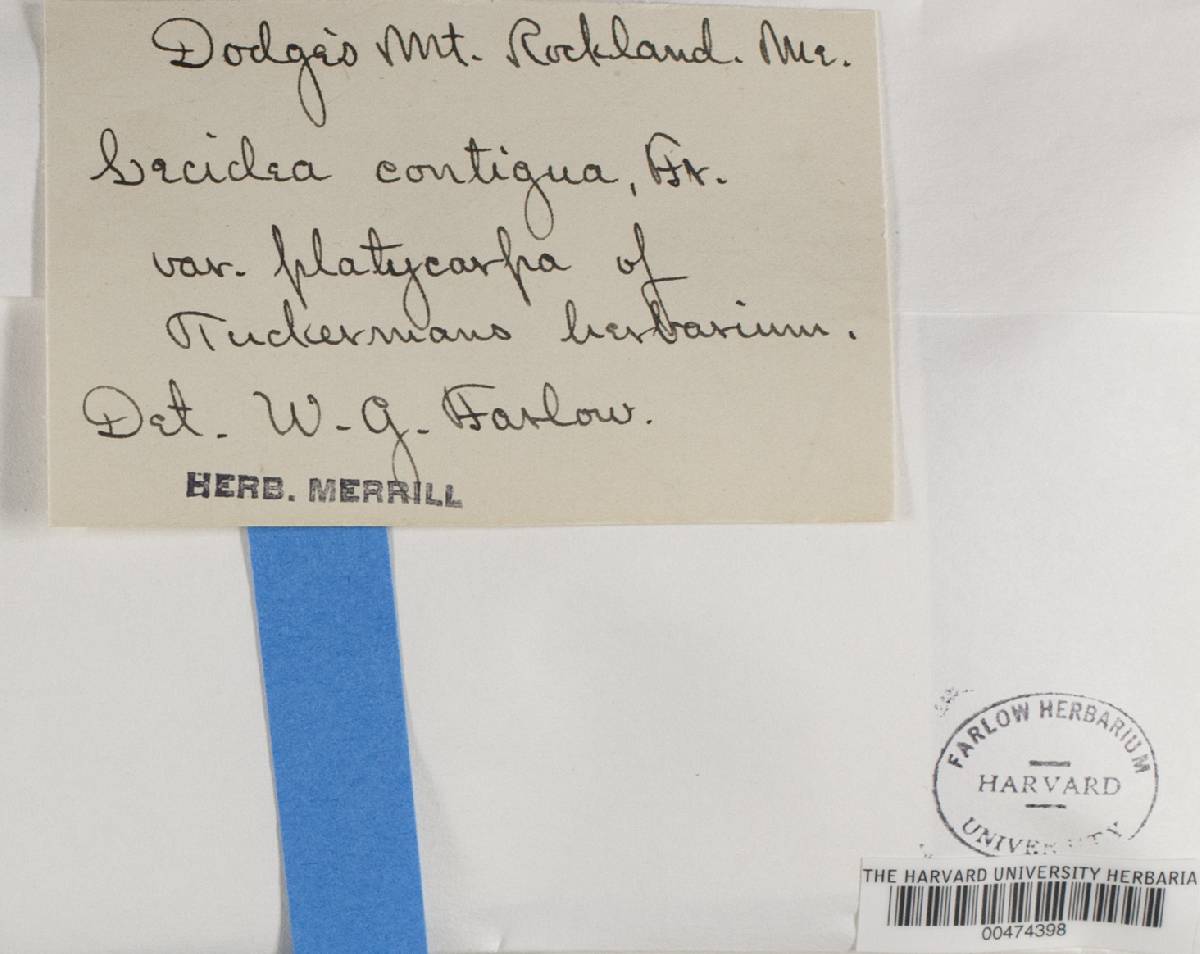 Dodge's Mt. Rockland. Me.
Lecidea contigua, Fr.
var. platycarpa of
Tuckermans herbarium.
Det. W. G. Farlow.
HERB. MERRILL
FARLOW HERBARIUM
HARVARD
UNIVERSITY
THE HARVARD UNIVERSITY HERBARIA
00474398